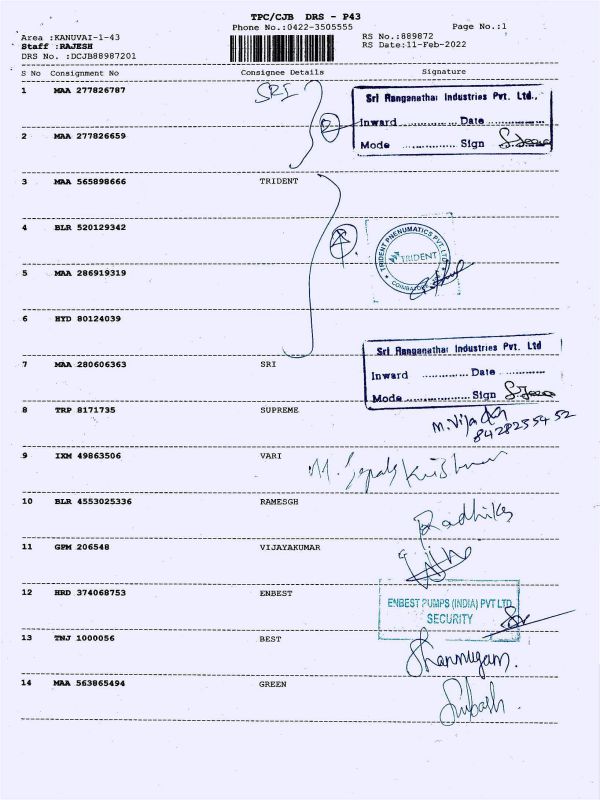 TPC/CJB DRS - P43
Phone No.:0422-3505555
Page No.:1
Area :KANUVAI-1-43
RS No.:889872
Staff :RAJESH
RS Date:11-Feb-2022
DRS No. :DCJB88987201
S No Consignment No Consignee Details Signature
1 MAA 277826787 SRI
Sri Ranganathar Industries Pvt. Ltd.,
Inward .............. Date ..............
Mode .............. Sign
2 MAA 277826659
3 MAA 565898666 TRIDENT
4 BLR 520129342
TRIDENT PNEUMATICS PVT. LTD
TRIDENT
COIMBATORE
5 MAA 286919319
6 HYD 80124039
Sri Ranganathar Industries Pvt. Ltd
7 MAA 280606363 SRI
Inward .............. Date ..............
Mode .............. Sign
8 TRP 8171735 SUPREME
9 IXM 49863506 VARI
10 BLR 4553025336 RAMESGH
Radhika
11 GPM 206548 VIJAYAKUMAR
12 HRD 374068753 ENBEST
ENBEST PUMPS (INDIA) PVT LTD
SECURITY
13 TNJ 1000056 BEST
Shanmugam.
14 MAA 563865494 GREEN
Subash.